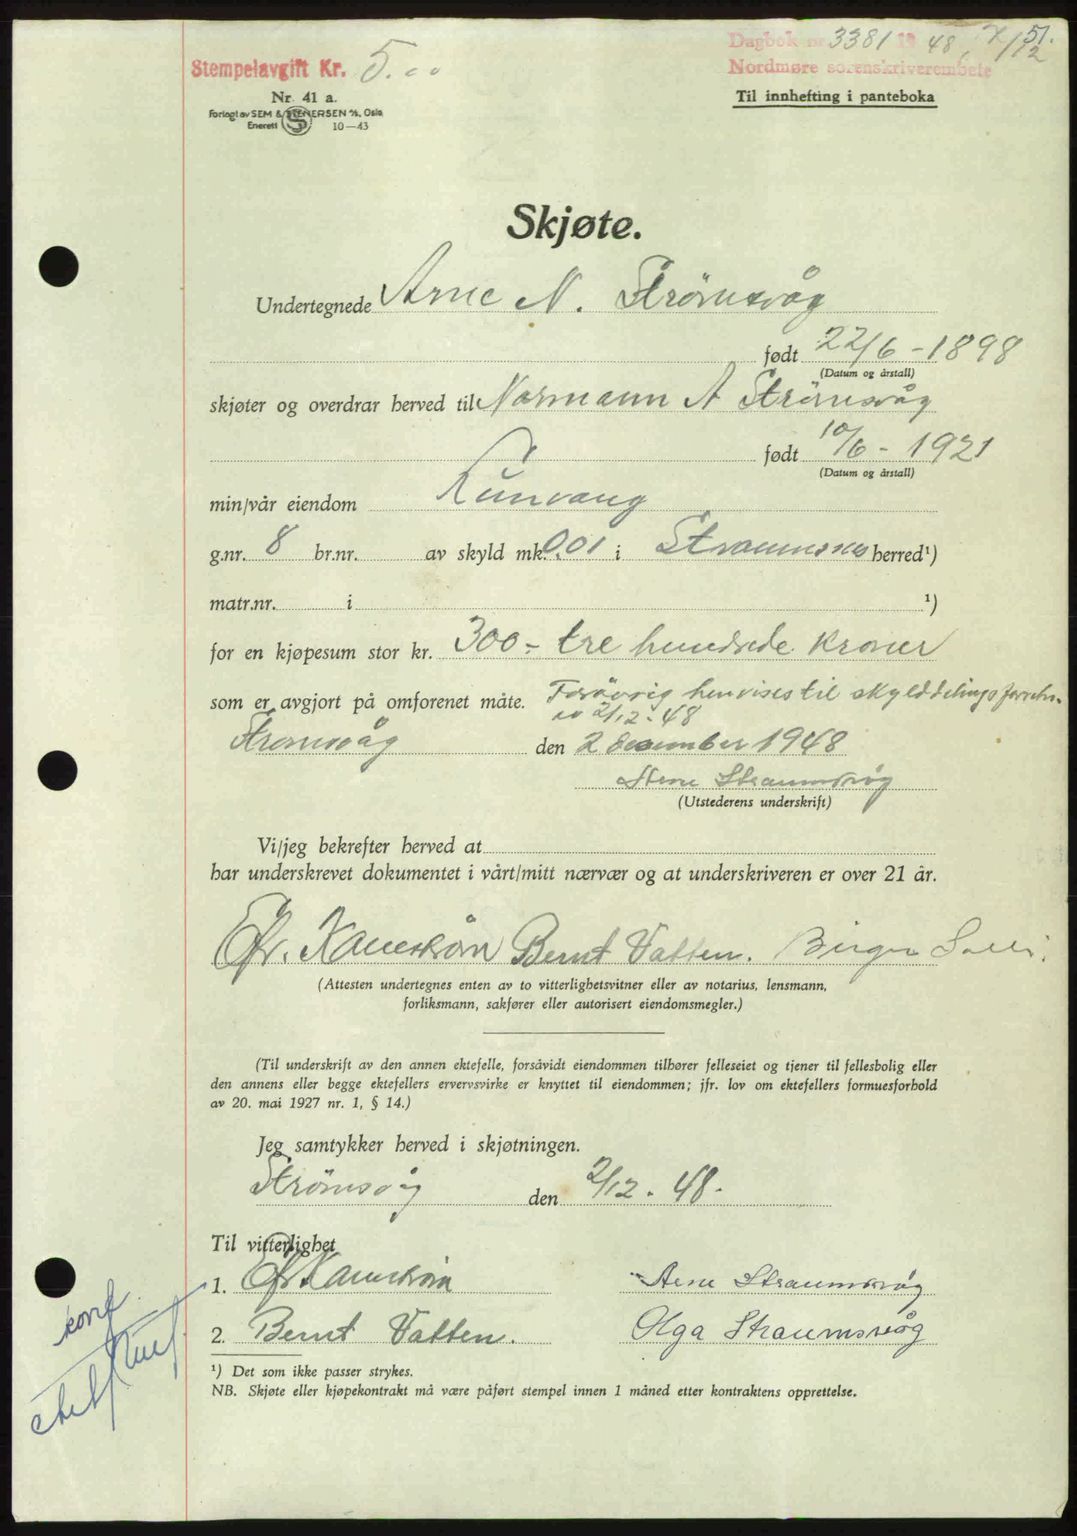 Stempelavgift Kr. 5.00
Dagbok nr 3381 19 48, 7/12
51.
Nordmøre sorenskriverembete
Nr. 41 a.
Forlagt av SEM & STENERSEN A/S, Oslo
Enerett S 10-43
Til innhefting i panteboka
Skjøte.
Undertegnede Arne N. Strømsvåg
født 22/6-1898
(Datum og årstall)
skjøter og overdrar herved til Normann A Strömsvåg
født 10/6-1921
(Datum og årstall)
min/vår eiendom
g.nr. 8 br.nr. av skyld mk. 0.01 i Straumsnes herred¹)
matr.nr. i ¹)
for en kjøpesum stor kr. 300.- tre hundrede kroner
som er avgjort på omforenet måte. Forøvrig henvises til skylddelingsforretn.
av 2/12-48
Strømsvåg den 2 desember 1948
Arne Straumsvåg
(Utstederens underskrift)
Vi/jeg bekrefter herved at
har underskrevet dokumentet i vårt/mitt nærvær og at underskriveren er over 21 år.
Bernt Vatten. Birger
(Attesten undertegnes enten av to vitterlighetsvitner eller av notarius, lensmann,
forliksmann, sakfører eller autorisert eiendomsmegler.)
(Til underskrift av den annen ektefelle, forsåvidt eiendommen tilhører felleseiet og tjener til fellesbolig eller
den annens eller begge ektefellers ervervsvirke er knyttet til eiendommen; jfr. lov om ektefellers formuesforhold
av 20. mai 1927 nr. 1, § 14.)
Jeg samtykker herved i skjøtningen.
Strömsvåg den 2/12-48-
Til vitterlighet
1. Arne Straumsvåg
2. Bernt Vatten. Olga Straumsvåg
konf.
¹) Det som ikke passer strykes.
NB. Skjøte eller kjøpekontrakt må være påført stempel innen 1 måned etter kontraktens opprettelse.